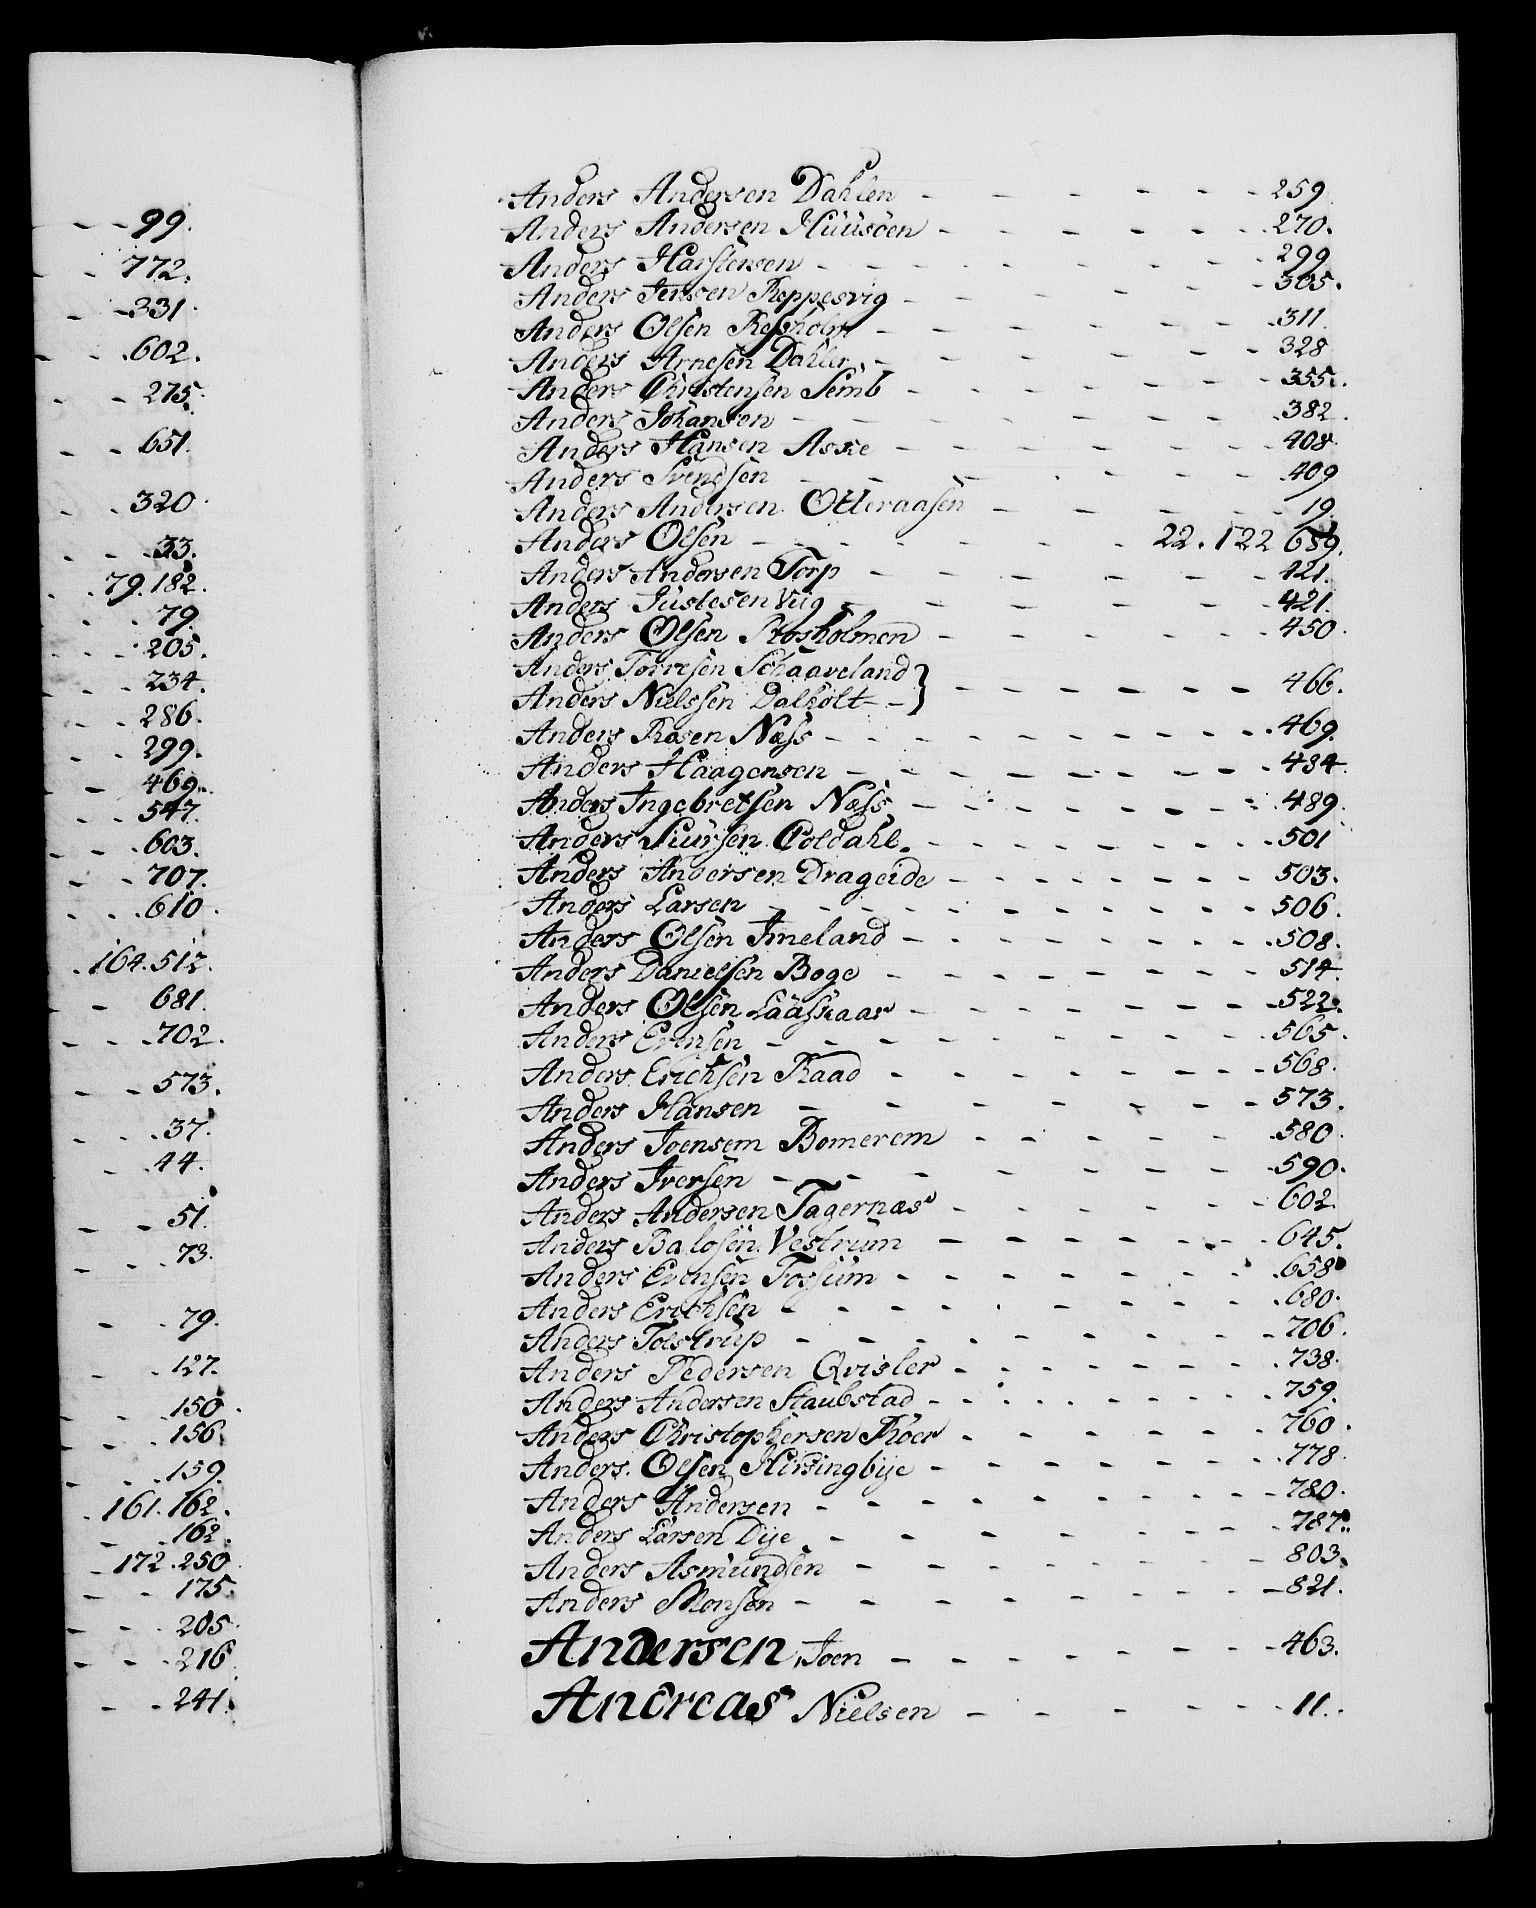 99.
772.
331.
602.
275.
651.
320.
33.
79.182.
79.
205.
234.
286.
299.
469.
547.
603.
707.
610.
164.512.
681.
702.
573.
37.
44.
51.
73.
79.
127.
150.
156.
159.
161.162.
162.
172.250
175.
205.
216
241.
Anders Andersen Dahlen - - - - - - 259.
Anders Andersen Huusöen - - - - - - 270.
Anders Harstensen - - - - - - 299
Anders Jensen Reppesvig - - - - - - 305.
Anders Olsen - - - - - - 311
Anders Arnesen Dahler - - - - - - 328
Anders Christensen Semb - - - - - - 355.
Anders Johansen - - - - - - 382.
Anders Hansen Aske - - - - - - 408.
Anders Svendsen - - - - - - 409
Anders Andersen Otteraasen - - - - - 19.
Anders Olsen - - - - - 22. 122 659.
Anders Andersen Torp - - - - - - 421.
Anders Justesen Viig - - - - - - 421.
Anders Olsen Stosholmen - - - - - - 450.
Anders Torresen Schaaveland }
Anders Nielssen Dalholt - - } - - - - - - 466.
Anders Rasen Næss - - - - - - 469.
Anders Haagensen - - - - - - 484.
Anders Ingebretsen Næss - - - - - - 489.
Anders Siursen Coldahl. - - - - - - 501
Anders Andersen Drageide - - - - - - 503.
Anders Larsen - - - - - - 506.
Anders Olsen Imeland - - - - - - 508.
Anders Danielsen Boge - - - - - - 514.
Anders Olsen Laaskaar - - - - - - 522.
Anders Evensen - - - - - - 565.
Anders Erichsen Raad - - - - - - 568.
Anders Hansen - - - - - - 573.
Anders Joensem Bomerem - - - - - - 580.
Anders Iversen - - - - - - 590.
Anders Andersen Tagernæs - - - - - - 602.
Anders Balosen Vestrum - - - - - - 645.
Anders Evensen Fossum - - - - - - 658
Anders Erichsen - - - - - - 680.
Anders Toestrup - - - - - - 706.
Anders Pedersen Qvisler - - - - - - 738.
Anders Andersen Staubstad - - - - - - 759.
Anders Christophersen Röer - - - - - - 760.
Anders Olsen Hirsingbye - - - - - - 778.
Anders Andersen - - - - - - 780.
Anders Larsen Dye - - - - - - 787.
Anders Asmundsen - - - - - - 803.
Anders Monsen - - - - - - 821.
Andersen, Joen - - - - - - 463.
Andreas Nielsen - - - - - - 11.